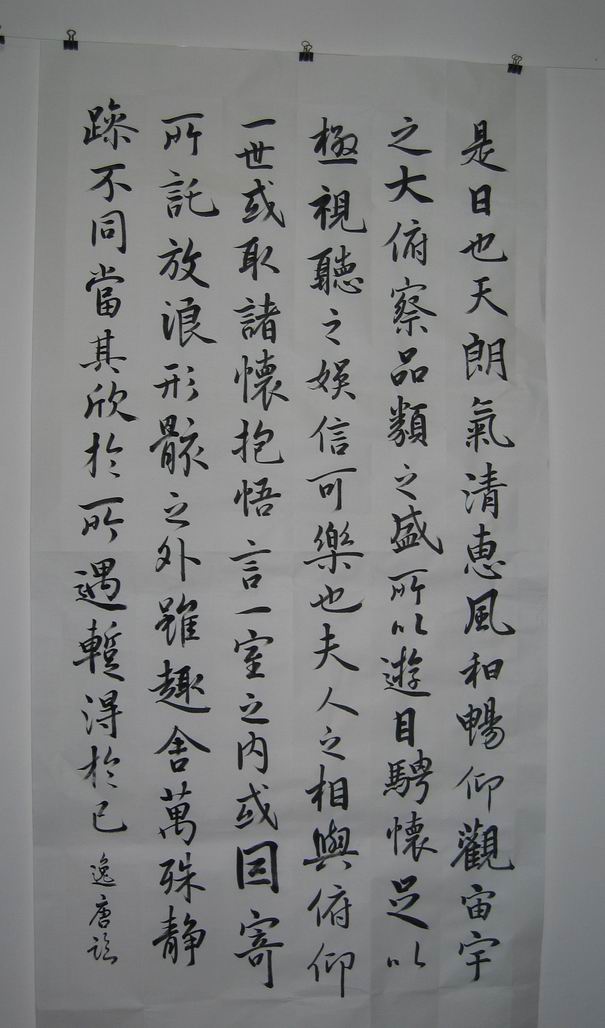 是日也天朗氣清惠風和暢仰觀宙宇
之大俯察品類之盛所以遊目騁懷足以
極視聽之娛信可樂也夫人之相與俯仰
一世或取諸懷抱悟言一室之內或因寄
所託放浪形骸之外雖趣舍萬殊靜
躁不同當其欣於所遇暫得於己